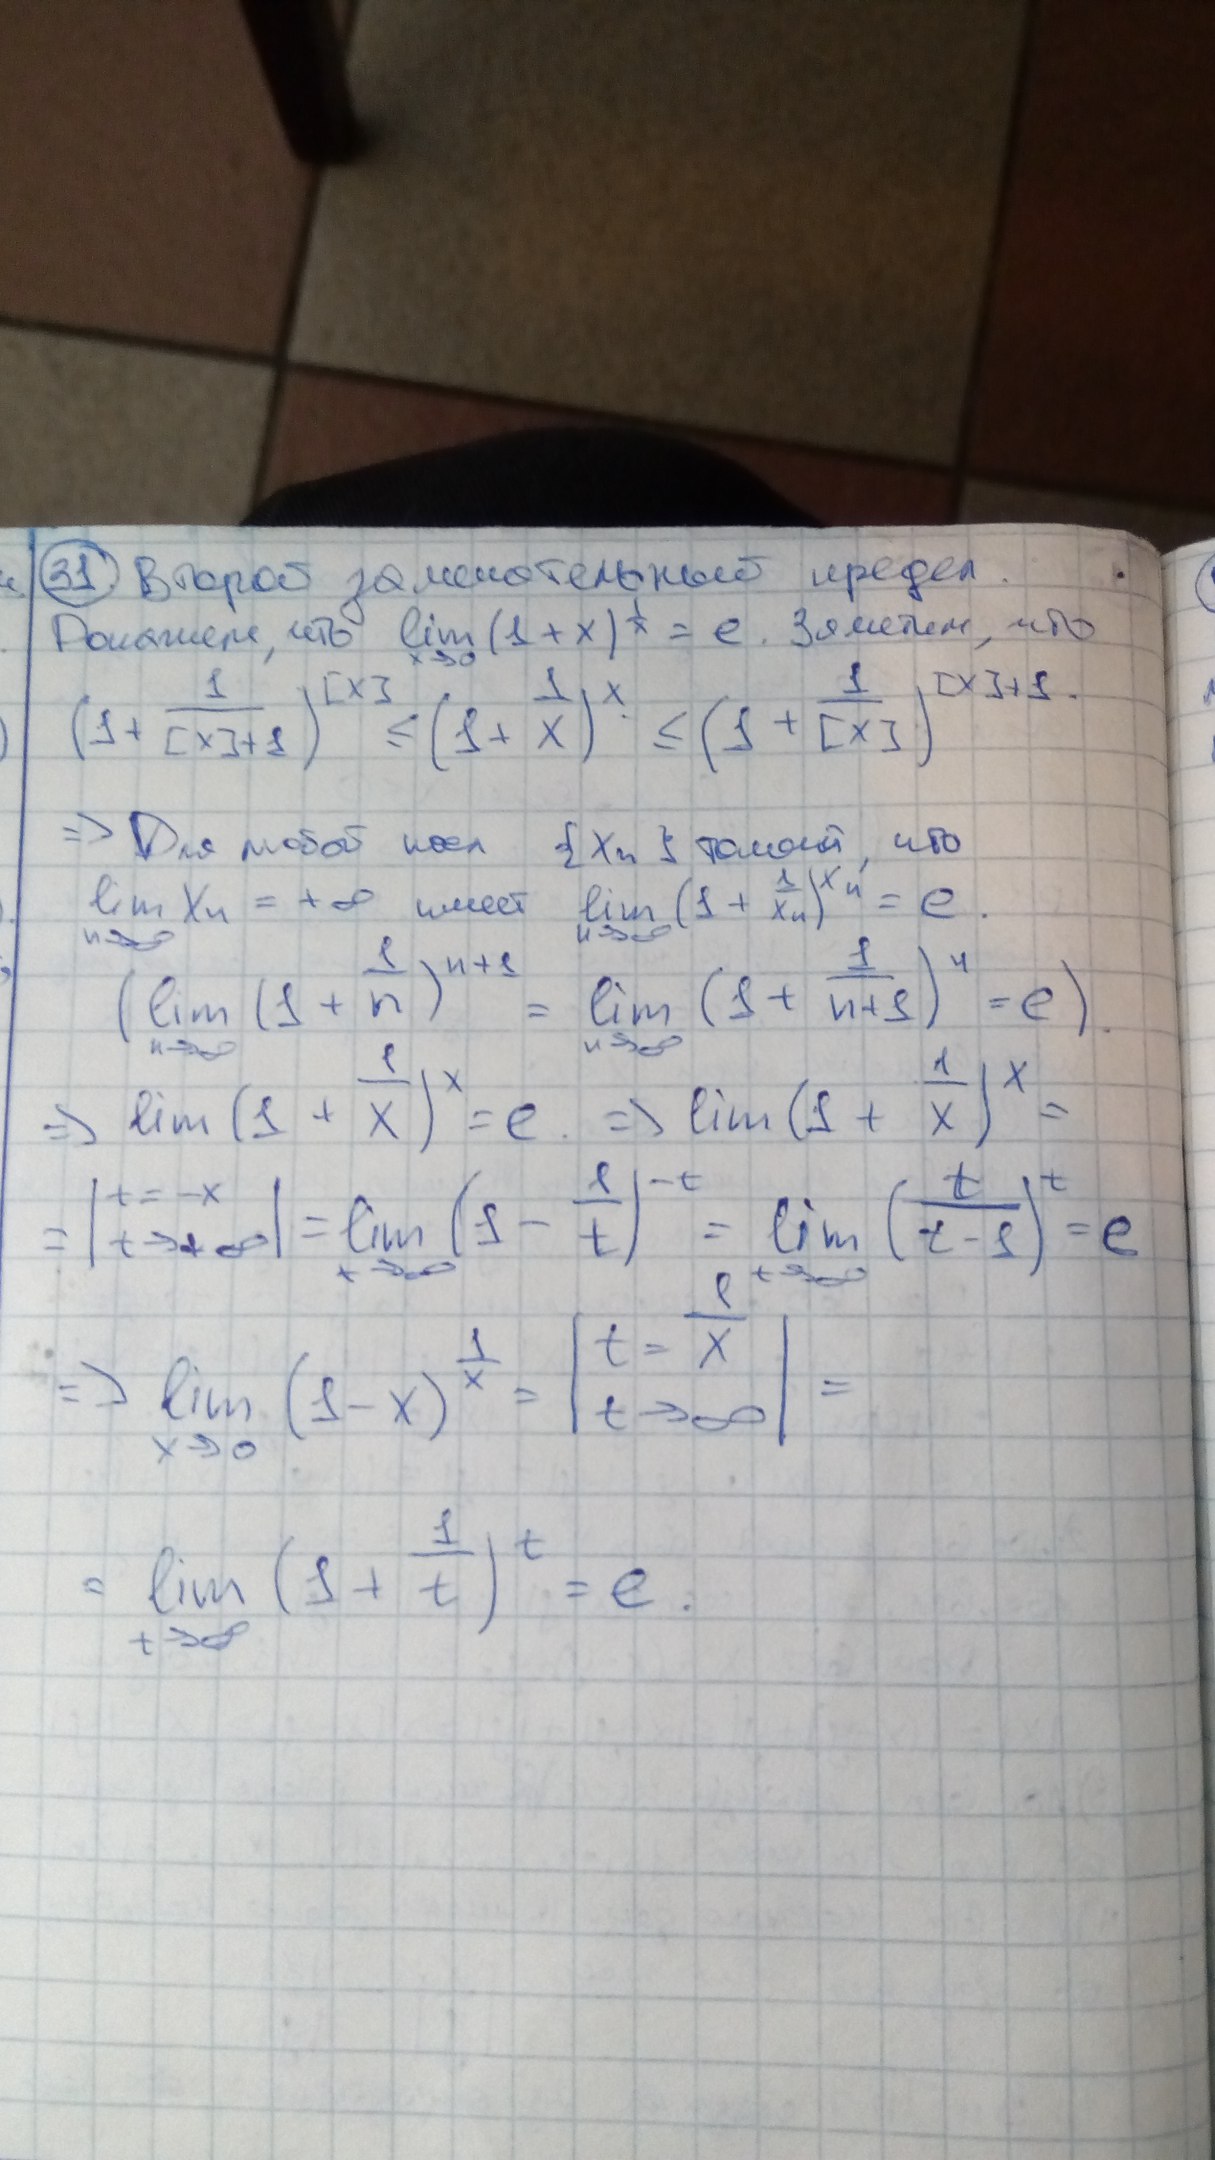 31 Второй замечательный предел.
Докажем, что lim x→0 (1 + x)^(1/x) = e. Заметим, что
(1 + 1/([x]+1))^[x] ≤ (1 + 1/x)^x ≤ (1 + 1/[x])^([x]+1).
=> Для любой посл {xn} такой, что
lim n→∞ xn = +∞ имеет lim n→∞ (1 + 1/xn)^xn = e.
(lim n→∞ (1 + 1/n)^(n+1) = lim n→∞ (1 + 1/(n+1))^n = e).
=> lim (1 + 1/x)^x = e. => lim (1 + 1/x)^x =
= | t = -x t→+∞ | = lim t→∞ (1 - 1/t)^(-t) = lim t→∞ (t/(t-1))^t = e
=> lim x→0 (1-x)^(1/x) = | t = 1/x t→∞ | =
= lim t→∞ (1 + 1/t)^t = e.